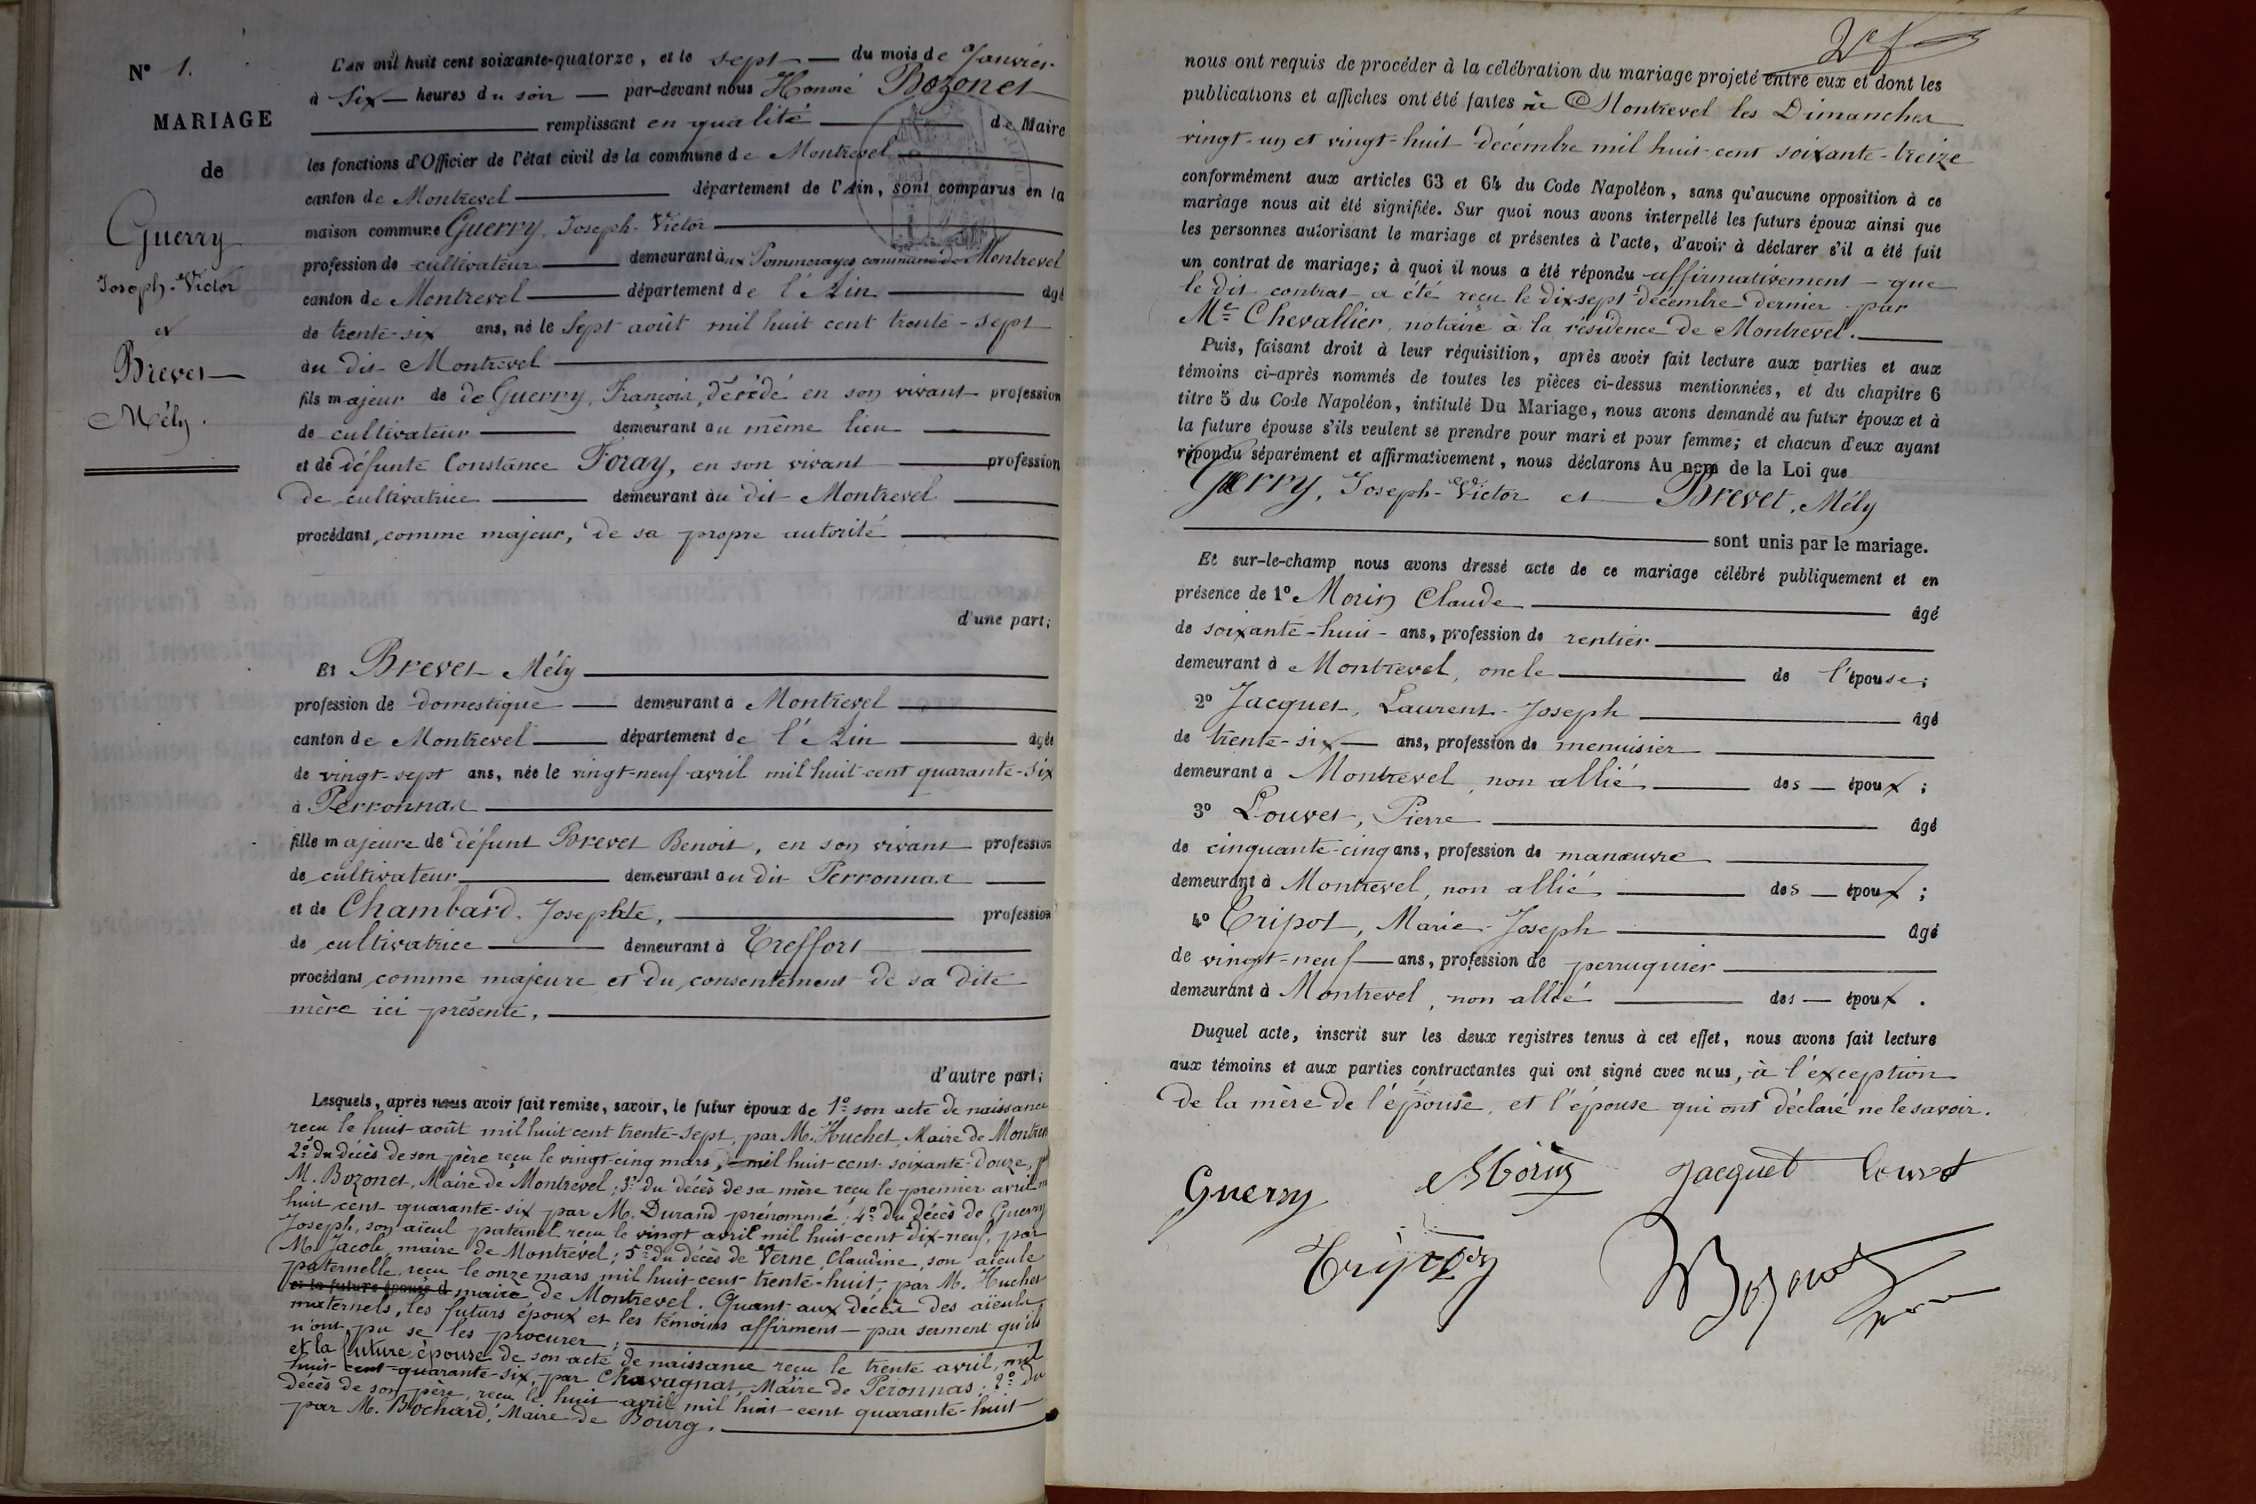 N° 1.
MARIAGE
de
Guerry
Joseph-Victor
et
Brevet
Mély.
L'an mil huit cent soixante-quatorze, et le sept du mois de Janvier
à six heures du soir par-devant nous Honoré Bozonet
remplissant en qualité de Maire
les fonctions d'Officier de l'état civil de la commune de Montrevel
canton de Montrevel département de l'Ain, sont comparus en la
maison commune Guerry, Joseph-Victor
profession de cultivateur demeurant aux Pommerayes commune de Montrevel
canton de Montrevel département de l'Ain âgé
de trente-six ans, né le sept août mil huit cent trente-sept
au dit Montrevel
fils majeur de de Guerry, François, décédé en son vivant profession
de cultivateur demeurant au même lieu
et de défunte Constance Foray, en son vivant profession
de cultivatrice demeurant au dit Montrevel
procédant comme majeur, de sa propre autorité
d'une part;
Et Brevet Mély
profession de domestique demeurant à Montrevel
canton de Montrevel département de l'Ain âgée
de vingt-sept ans, née le vingt-neuf avril mil huit cent quarante-six
à Perronnax
fille majeure de défunt Brevet Benoit, en son vivant profession
de cultivateur demeurant au dit Perronnax
et de Chambard, Josephte, profession
de cultivatrice demeurant à Treffort
procédant comme majeure et du consentement de sa dite
mère ici présente.
d'autre part;
Lesquels, après nous avoir fait remise, savoir, le futur époux de 1° son acte de naissance
reçu le huit août mil huit cent trente-sept, par M. Huchet, Maire de Montrevel
2° du décès de son père reçu le vingt-cinq mars, mil huit-cent-soixante-douze, p
M. Bozonet, Maire de Montrevel; 3° du décès de sa mère reçu le premier avril m
huit cent quarante-six par M. Durand prénommé; 4° du décès de Guerry
Joseph, son aïeul paternel reçu le vingt avril mil huit-cent dix-neuf, par
M. Jacob, maire de Montrevel; 5° du décès de Verne, Claudine, son aïeule
paternelle, reçu le onze mars mil huit-cent trente-huit, par M. Huchet
et la future épouse d maire de Montrevel. Quant aux décès des aïeuls
maternels, les futurs époux et les témoins affirment par serment qu'ils
n'ont pu se les procurer;
et la future épouse de son acte de naissance reçu le trente avril, mil
huit cent-quarante-six, par Chavagnat, Maire de Peronnas; 2° du
décès de son père, reçu le huit avril mil huit cent quarante-huit
par M. Bochard, Maire de Bourg.
nous ont requis de procéder à la célébration du mariage projeté entre eux et dont les
publications et affiches ont été faites à Montrevel les Dimanches
vingt-un et vingt-huit décembre mil huit-cent soixante-treize
conformément aux articles 63 et 64 du Code Napoléon, sans qu'aucune opposition à ce
mariage nous ait été signifiée. Sur quoi nous avons interpellé les futurs époux ainsi que
les personnes autorisant le mariage et présentes à l'acte, d'avoir à déclarer s'il a été fait
un contrat de mariage; à quoi il nous a été répondu affirmativement que
le dit contrat a été reçu le dix-sept décembre dernier par
Me Chevallier, notaire à la résidence de Montrevel.
Puis, faisant droit à leur réquisition, après avoir fait lecture aux parties et aux
témoins ci-après nommés de toutes les pièces ci-dessus mentionnées, et du chapitre 6
titre 5 du Code Napoléon, intitulé Du Mariage, nous avons demandé au futur époux et à
la future épouse s'ils veulent se prendre pour mari et pour femme; et chacun d'eux ayant
répondu séparément et affirmativement, nous déclarons Au nom de la Loi que
Guerry, Joseph-Victor et Brevet, Mély
sont unis par le mariage.
Et sur-le-champ nous avons dressé acte de ce mariage célébré publiquement et en
présence de 1° Morin Claude âgé
de soixante-huit ans, profession de rentier
demeurant à Montrevel, oncle de l'épouse;
2° Jacquet, Laurent-Joseph âgé
de trente-six ans, profession de menuisier
demeurant à Montrevel, non allié des époux;
3° Louvet, Pierre âgé
de cinquante-cinq ans, profession de manœuvre
demeurant à Montrevel, non allié des époux;
4° Tripot, Marie-Joseph âgé
de vingt-neuf ans, profession de perruquier
demeurant à Montrevel, non allié des époux.
Duquel acte, inscrit sur les deux registres tenus à cet effet, nous avons fait lecture
aux témoins et aux parties contractantes qui ont signé avec nous, à l'exception
de la mère de l'épouse, et l'épouse qui ont déclaré ne le savoir.
Guerry Morin Jacquet Louvet
Tripoz Bozonet